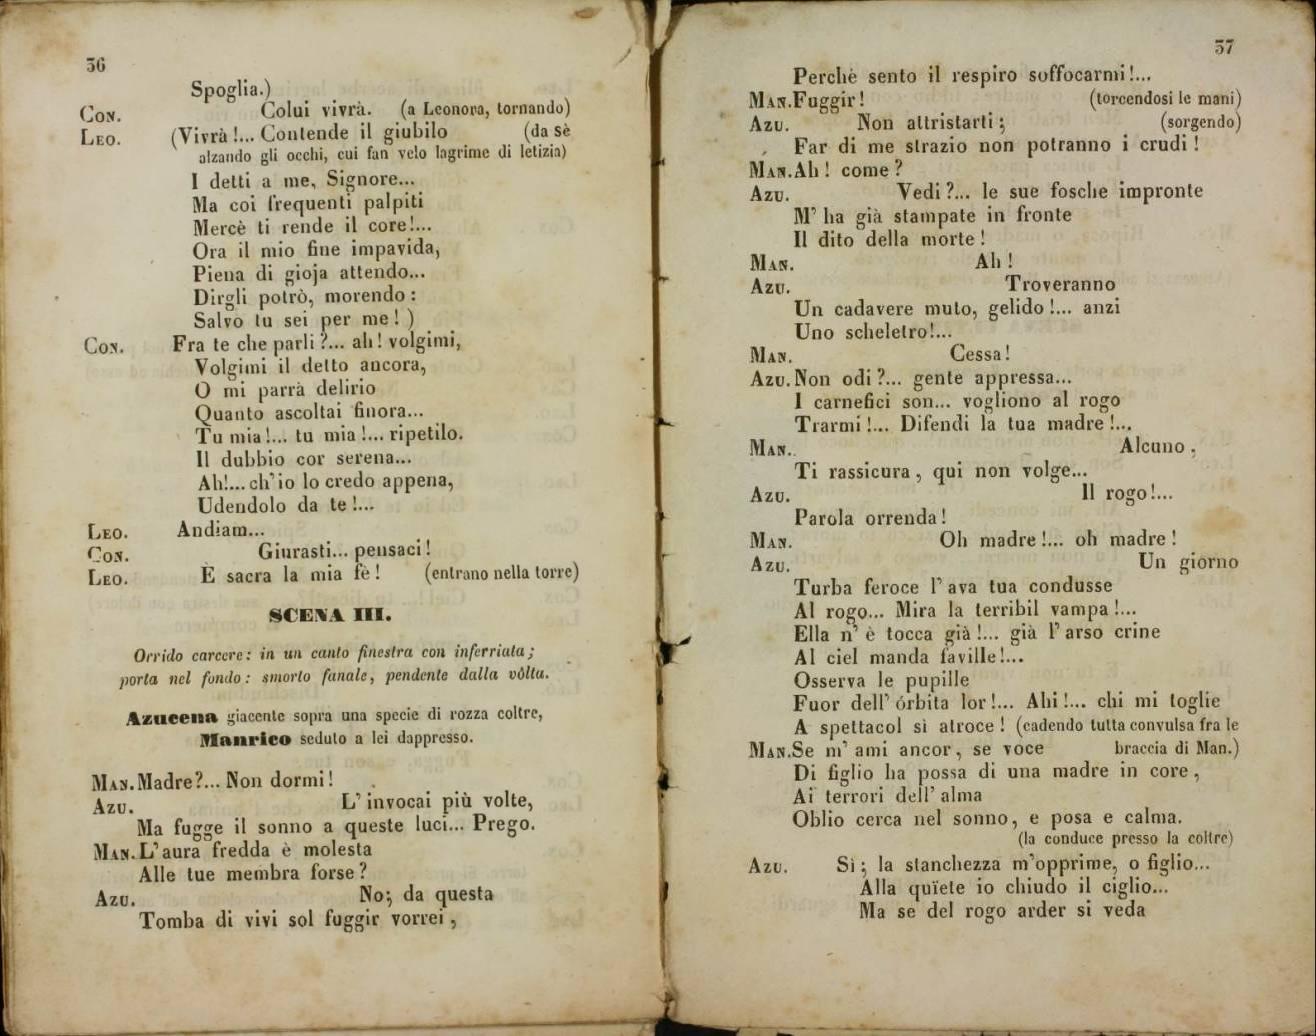 36
Spoglia.)
CON. Colui vivrà. (a Leonora, tornando)
LEO. (Vivrà!... Contende il giubilo (da sè
alzando gli occhi, cui fan velo lagrime di letizia)
I detti a me, Signore...
Ma coi frequenti palpiti
Mercè ti rende il core!...
Ora il mio fine impavida,
Piena di gioja attendo...
Dirgli potrò, morendo:
Salvo tu sei per me!)
CON. Fra te che parli?... ah! volgimi,
Volgimi il detto ancora,
O mi parrà delirio
Quanto ascoltai finora...
Tu mia!... tu mia!... ripetilo.
Il dubbio cor serena...
Ah!... ch'io lo credo appena,
Udendolo da te!...
LEO. Andiam...
CON. Giurasti... pensaci!
LEO. È sacra la mia fè! (entrano nella torre)
SCENA III.
Orrido carcere: in un canto finestra con inferriata;
porta nel fondo: smorto fanale, pendente dalla vôlta.
Azucena giacente sopra una specie di rozza coltre,
Manrico seduto a lei dappresso.
MAN. Madre?... Non dormi!
AZU. L'invocai più volte,
Ma fugge il sonno a queste luci... Prego.
MAN. L'aura fredda è molesta
Alle tue membra forse?
AZU. No; da questa
Tomba di vivi sol fuggir vorrei,
37
Perchè sento il respiro soffocarmi!...
MAN. Fuggir! (torcendosi le mani)
AZU. Non attristarti; (sorgendo)
Far di me strazio non potranno i crudi!
MAN. Ah! come?
AZU. Vedi?... le sue fosche impronte
M'ha già stampate in fronte
Il dito della morte!
MAN. Ah!
AZU. Troveranno
Un cadavere muto, gelido!... anzi
Uno scheletro!...
MAN. Cessa!
AZU. Non odi?... gente appressa...
I carnefici son... vogliono al rogo
Trarmi!... Difendi la tua madre!...
MAN. Alcuno,
Ti rassicura, qui non volge...
AZU. Il rogo!...
Parola orrenda!
MAN. Oh madre!... oh madre!
AZU. Un giorno
Turba feroce l'ava tua condusse
Al rogo... Mira la terribil vampa!...
Ella n'è tocca già!... già l'arso crine
Al ciel manda faville!...
Osserva le pupille
Fuor dell'órbita lor!... Ahi!... chi mi toglie
A spettacol sì atroce! (cadendo tutta convulsa fra le
MAN. Se m'ami ancor, se voce braccia di Man.)
Di figlio ha possa di una madre in core,
Ai terrori dell'alma
Oblio cerca nel sonno, e posa e calma.
(la conduce presso la coltre)
AZU. Sì; la stanchezza m'opprime, o figlio...
Alla quïete io chiudo il ciglio...
Ma se del rogo arder si veda